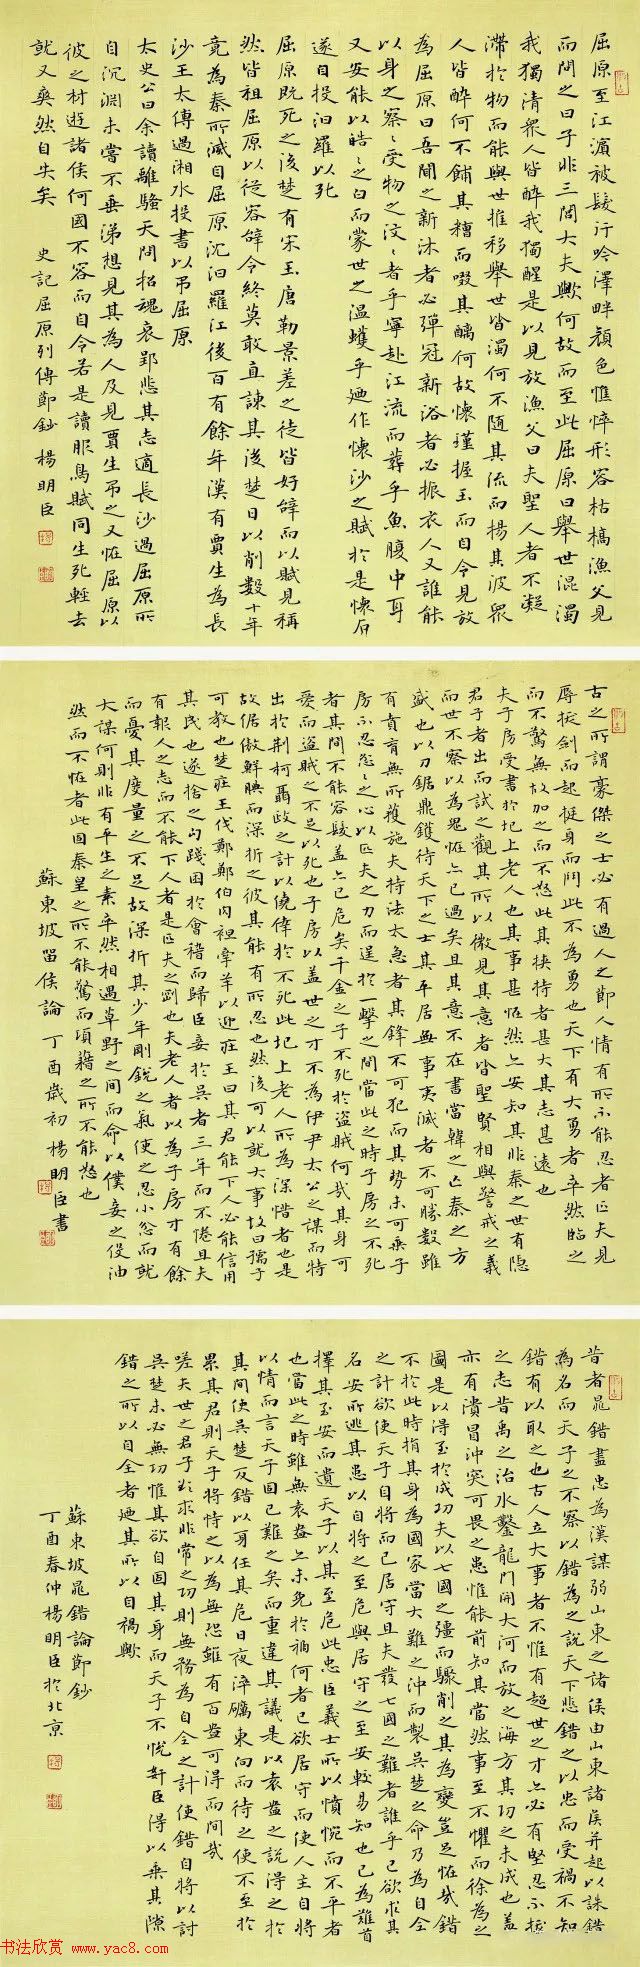 屈原至江濱被髮行吟澤畔顏色憔悴形容枯槁漁父見
而問之曰子非三閭大夫歟何故而至此屈原曰舉世混濁
我獨清衆人皆醉我獨醒是以見放漁父曰夫聖人者不凝
滯於物而能與世推移舉世皆濁何不隨其流而揚其波衆
人皆醉何不餔其糟而啜其醨何故懷瑾握玉而自令見放
為屈原曰吾聞之新沐者必彈冠新浴者必振衣人又誰能
以身之察々受物之汶々者乎寧赴江流而葬乎魚腹中耳
又安能以皓々之白而蒙世之溫蠖乎廼作懷沙之賦於是懷石
遂自投汨羅以死
屈原既死之後楚有宋玉唐勒景差之徒皆好辭而以賦見稱
然皆祖屈原以從容辭令終莫敢直諫其後楚日以削數十年
竟為秦所滅自屈原沉汨羅江後百有餘年漢有賈生為長
沙王太傅過湘水投書以弔屈原
太史公曰余讀離騷天問招魂哀郢悲其志適長沙過屈原所
自沉淵未嘗不垂涕想見其為人及見賈生弔之又怪屈原以
彼之材遊諸侯何國不容而自令若是讀服鳥賦同生死輕去
就又爽然自失矣 史記屈原列傳節鈔 楊明臣
古之所謂豪傑之士必有過人之節人情有所不能忍者匹夫見
辱拔劍而起挺身而鬥此不為勇也天下有大勇者卒然臨之
而不驚無故加之而不怒此其挾持者甚大其志甚遠也
夫子房受書於圯上老人也其事甚怪然亦安知其非秦之世有隱
君子者出而試之觀其所以微見其意者皆聖賢相與警戒之義
而世不察以為鬼怪亦已過矣且其意不在書當韓之亡秦之方
盛也以刀鋸鼎鑊待天下之士其平居無事夷滅者不可勝數雖
有賁育無所獲施夫持法太急者其鋒不可犯而其勢未可乘子
房不忍忿々之心以匹夫之力而逞於一擊之間當此之時子房之不死
者其間不能容髮蓋亦已危矣千金之子不死於盜賊何哉其身可
愛而盜賊之不足以死也子房以蓋世之才不為伊尹太公之謀而特
出於荆軻聶政之計以僥倖於不死此圯上老人所為深惜者也是
故倨傲鮮腆而深折之彼其能有所忍也然後可以就大事故曰孺子
可教也楚莊王伐鄭鄭伯肉袒牽羊以迎莊王曰其君能下人必能信用
其民也遂捨之勾踐困於會稽而歸臣妾於吳者三年而不倦且夫
有報人之志而不能下人者是匹夫之剛也夫老人者以為子房才有餘
而憂其度量之不足故深折其少年剛銳之氣使之忍小忿而就
大謀何則非有平生之素卒然相遇草野之間而命以僕妾之役油
然而不怪者此固秦皇之所不能驚而項籍之所不能怒也
蘇東坡留侯論 丁酉歲初 楊明臣書
昔者晁錯盡忠為漢謀弱山東之諸侯由山東諸侯并起以誅錯
為名而天子之不察以錯為之說天下悲錯之以忠而受禍不知
錯有以取之也古人立大事者不惟有超世之才亦必有堅忍不拔
之志昔禹之治水鑿龍門開大河而放之海方其功之未成也蓋
亦有潰冒冲突可畏之患惟能前知其當然事至不懼而徐為之
圖是以得至於成功夫以七國之彊而驟削之其為變豈足怪哉錯
不於此時捐其身為國家當大難之冲而製吳楚之命乃為自全
之計欲使天子自將而已居守且夫發七國之難者誰乎已欲求其
名安所逃其患以自將之至危與居守之至安較易知也已為難首
擇其至安而遺天子以其至危此忠臣義士所以憤惋而不平者
也當此之時雖無袁盎亦未免於禍何者已欲居守而使人主自將
以情而言天子固已難之矣而重違其議是以袁盎之說得之於
其間使吳楚反錯以身任其危日夜淬礪東向而待之使不至於
累其君則天子將恃之以為無恐雖有百盎可得而間哉
嗟夫世之君子欲求非常之功則無務為自全之計使錯自將以討
吳楚未必無功惟其欲自固其身而天子不悅奸臣得以乘其隙
錯之所以自全者廼其所以自禍歟
蘇東坡晁錯論節鈔
丁酉春仲楊明臣於北京
书法欣赏 www.yac8.com